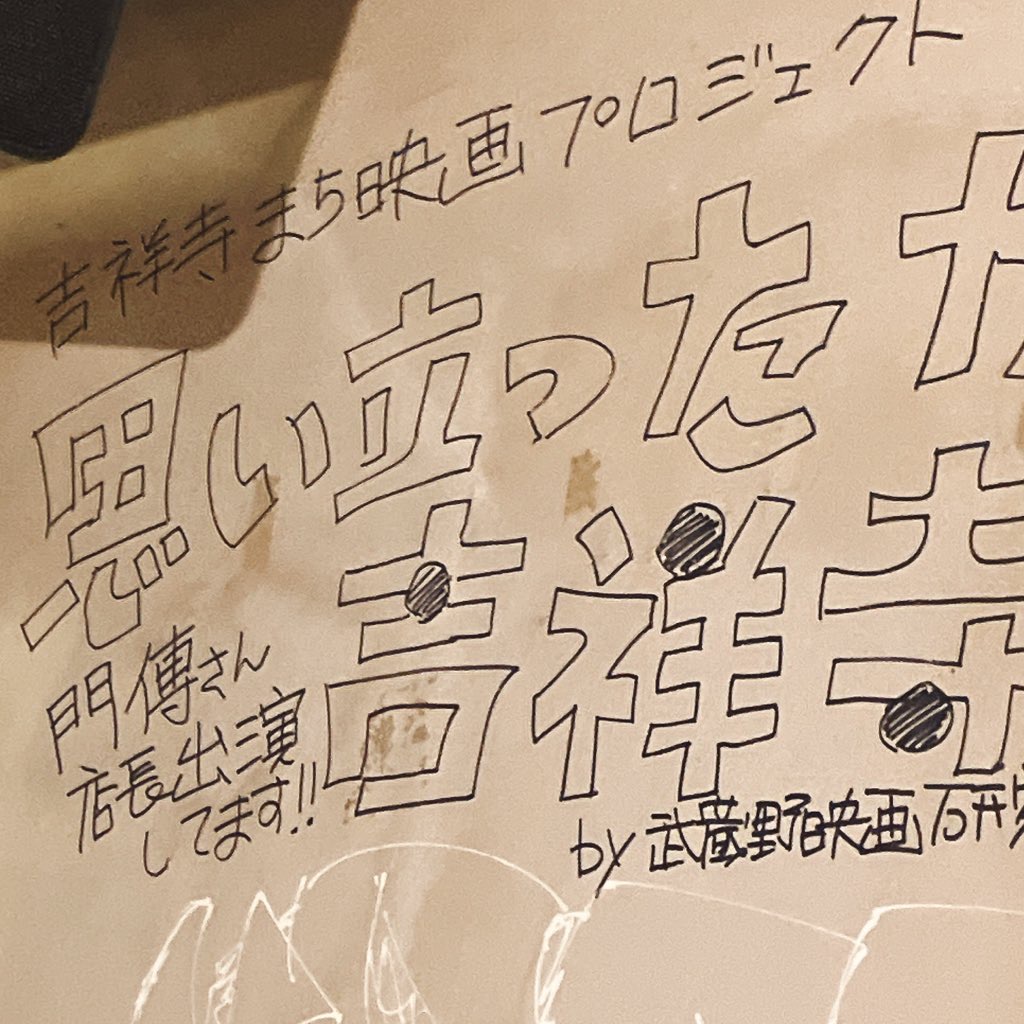 吉祥寺まち映画プロジェクト
思い立った
吉祥寺
門傳さん
店長出演
してます!!
by 武蔵野映画研